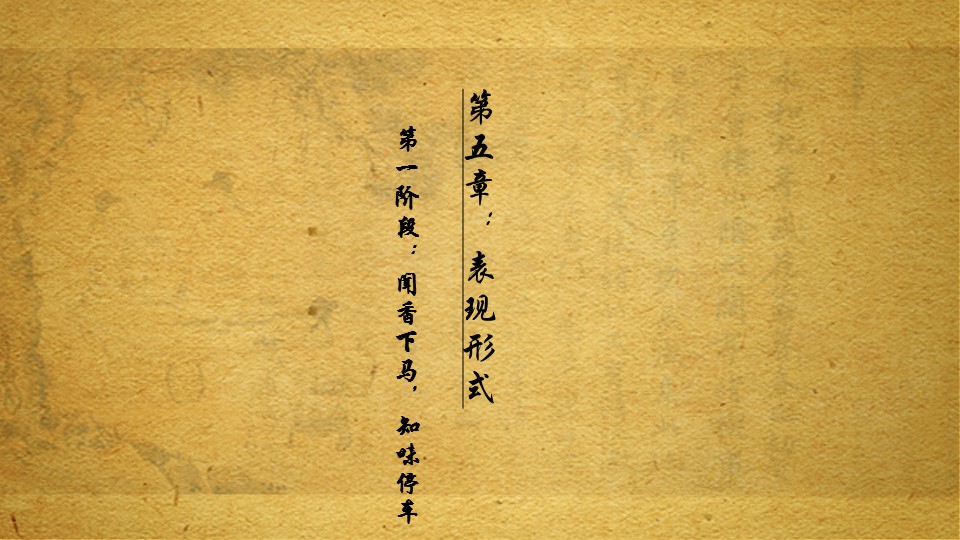 第五章：表现形式
第一阶段：闻香下马，知味停车